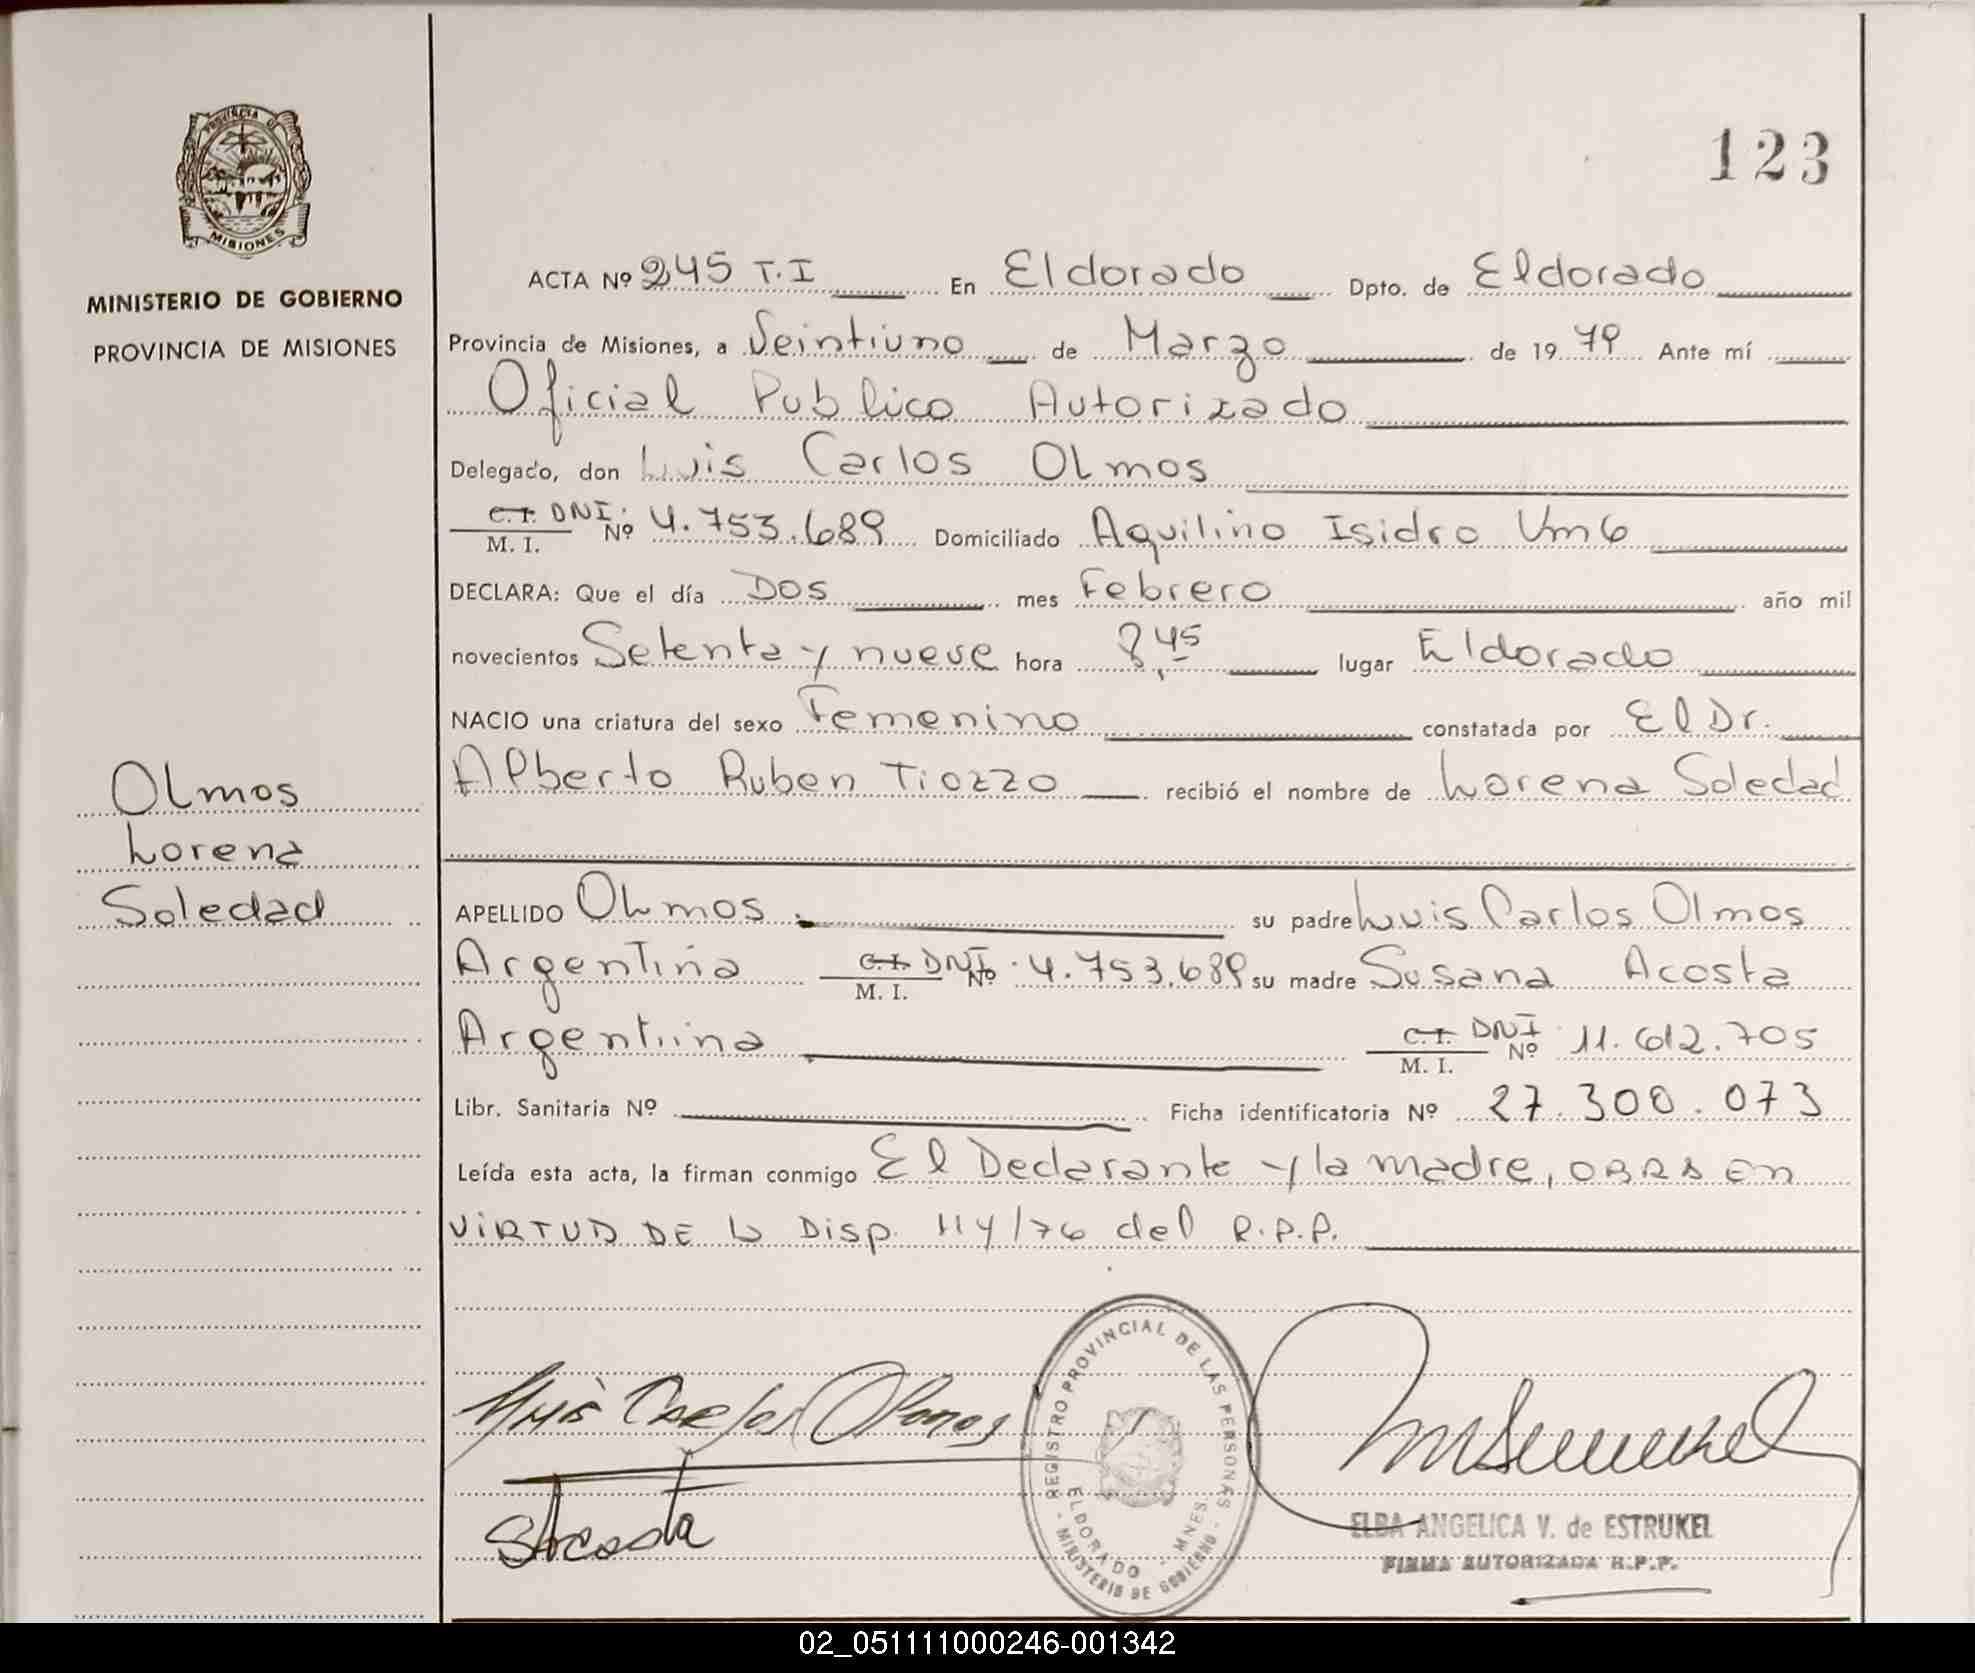 123
PROVINCIA DE
MISIONES
MINISTERIO DE GOBIERNO
PROVINCIA DE MISIONES
ACTA Nº 245 T.I En Eldorado Dpto. de Eldorado
Provincia de Misiones, a Veintiuno de Marzo de 1979 Ante mí
Oficial Publico Autorizado
Delegado, don Luis Carlos Olmos
C.I. DNI. Nº 4.753.689 Domiciliado Aquilino Isidro Km6
M. I.
DECLARA: Que el día Dos mes Febrero año mil
novecientos Setenta y nueve hora 8,45 lugar Eldorado
NACIO una criatura del sexo Femenino constatada por El Dr.
Alberto Ruben Tiozzo recibió el nombre de Lorena Soledad
Olmos
Lorena
Soledad
APELLIDO Olmos su padre Luis Carlos Olmos
Argentina C.I. DNI Nº 4.753.689 su madre Susana Acosta
M. I.
Argentina C.I. DNI Nº 11.612.705
M. I.
Libr. Sanitaria Nº Ficha identificatoria Nº 27.300.073
Leída esta acta, la firman conmigo El Declarante y la madre, OBRA En
VIRTUD DE la Disp. 114/76 del R.P.P.
Luis Carlos Olmos
SAcosta
REGISTRO PROVINCIAL DE LAS PERSONAS
ELDORADO - MNES.
- MINISTERIO DE GOBIERNO -
ELBA ANGELICA V. de ESTRUKEL
FIRMA AUTORIZADA R.P.P.
02_051111000246-001342